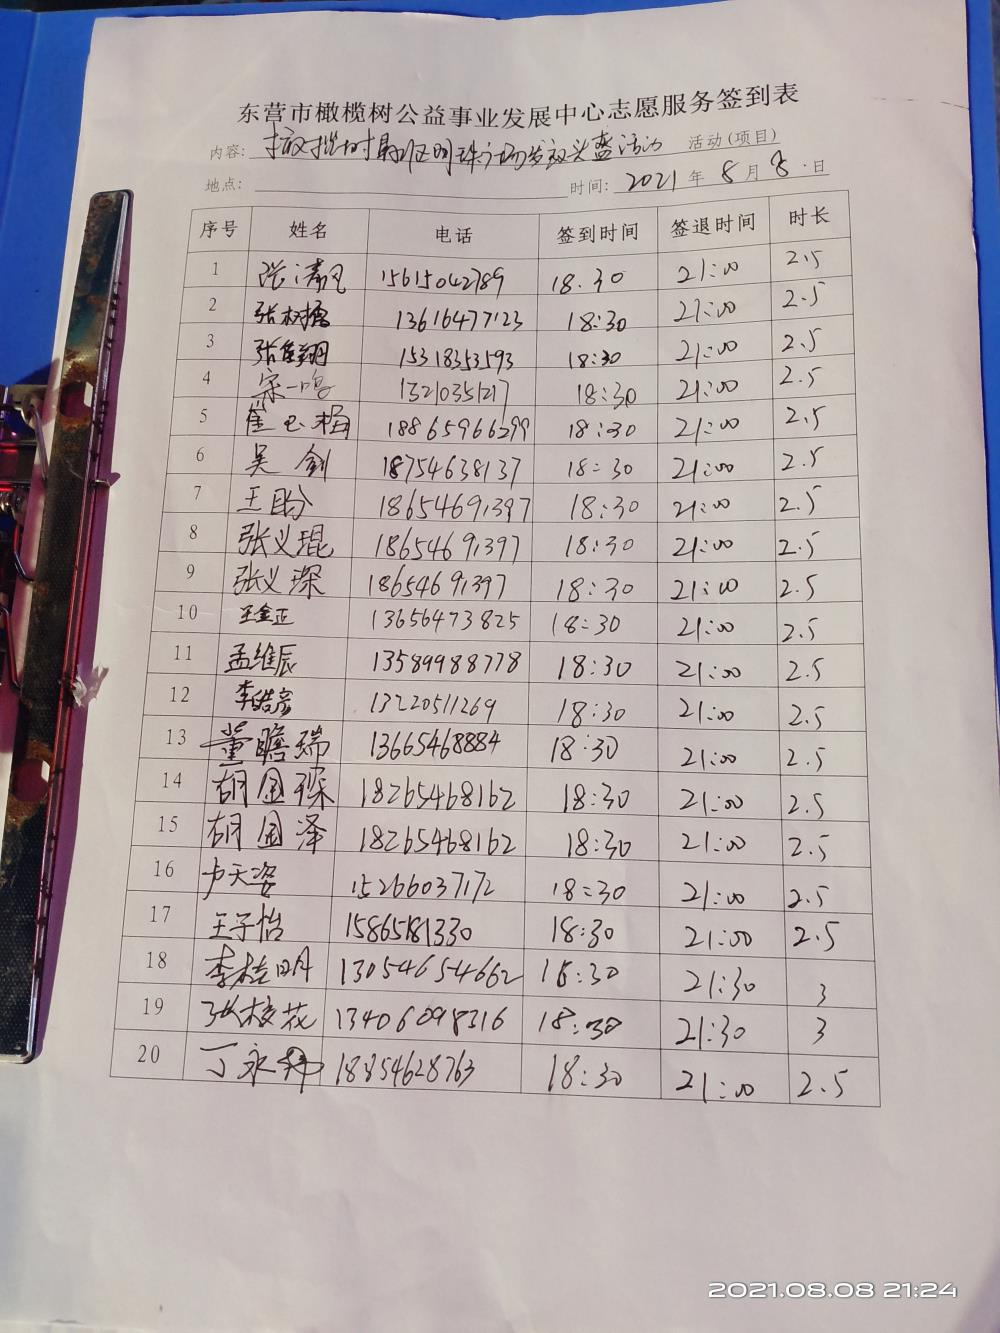 东营市橄榄树公益事业发展中心志愿服务签到表
内容: 橄榄树 明珠广场 义 活动 活动(项目)
地点: 时间: 2021 年 8 月 8 日
序号 姓名 电话 签到时间 签退时间 时长
1 张 15615042789 18.30 21:00 2.5
2 张树梅 13616477123 18:30 21:00 2.5
3 张 翔 15318353593 18:30 21:00 2.5
4 宋一鸣 13210351217 18:30 21:00 2.5
5 崔玉梅 18865966399 18:30 21:00 2.5
6 吴剑 18754638137 18:30 21:00 2.5
7 王盼 18654691397 18:30 21:00 2.5
8 张义琨 18654691397 18:30 21:00 2.5
9 张义琛 18654691397 18:30 21:00 2.5
10 王金正 13656473825 18:30 21:00 2.5
11 孟维辰 13589988778 18:30 21:00 2.5
12 李皓彦 13220511269 18:30 21:00 2.5
13 董瞻瑞 13665468884 18:30 21:00 2.5
14 胡国琛 18265468162 18:30 21:00 2.5
15 胡国泽 18265468162 18:30 21:00 2.5
16 卢天姿 15266037172 18:30 21:00 2.5
17 王子怡 15865181330 18:30 21:00 2.5
18 李桂明 13054654662 18:30 21:30 3
19 张枝花 13406098316 18:30 21:30 3
20 丁永 18854628763 18:30 21:00 2.5
2021.08.08 21:24